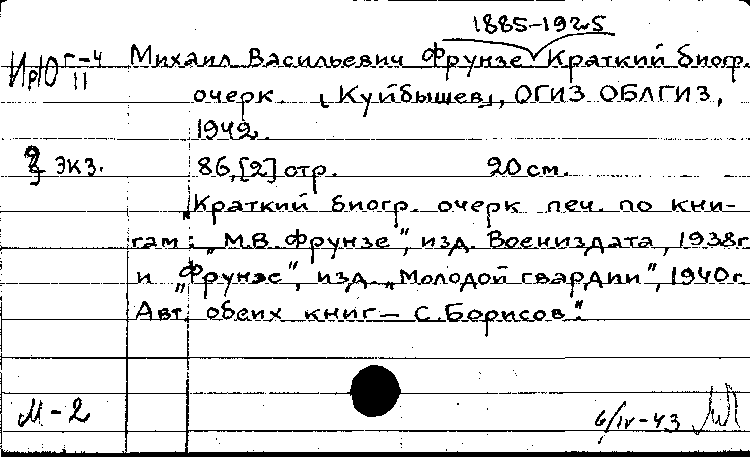 1885-1925
Михаил Васильевич Фрунзе Краткий биогр.
очерк. [Куйбышев], ОГИЗ ОБЛГИЗ,
1942.
экз. 86,[2] стр. 20 см.
„Краткий биогр. очерк печ. по кни-
гам: „М.В. Фрунзе", изд. Воениздата, 1938г
и „Фрунзе", изд. „Молодой гвардии", 1940г.
Авт. обеих книг — С. Борисов".
М-2
6/IV-43